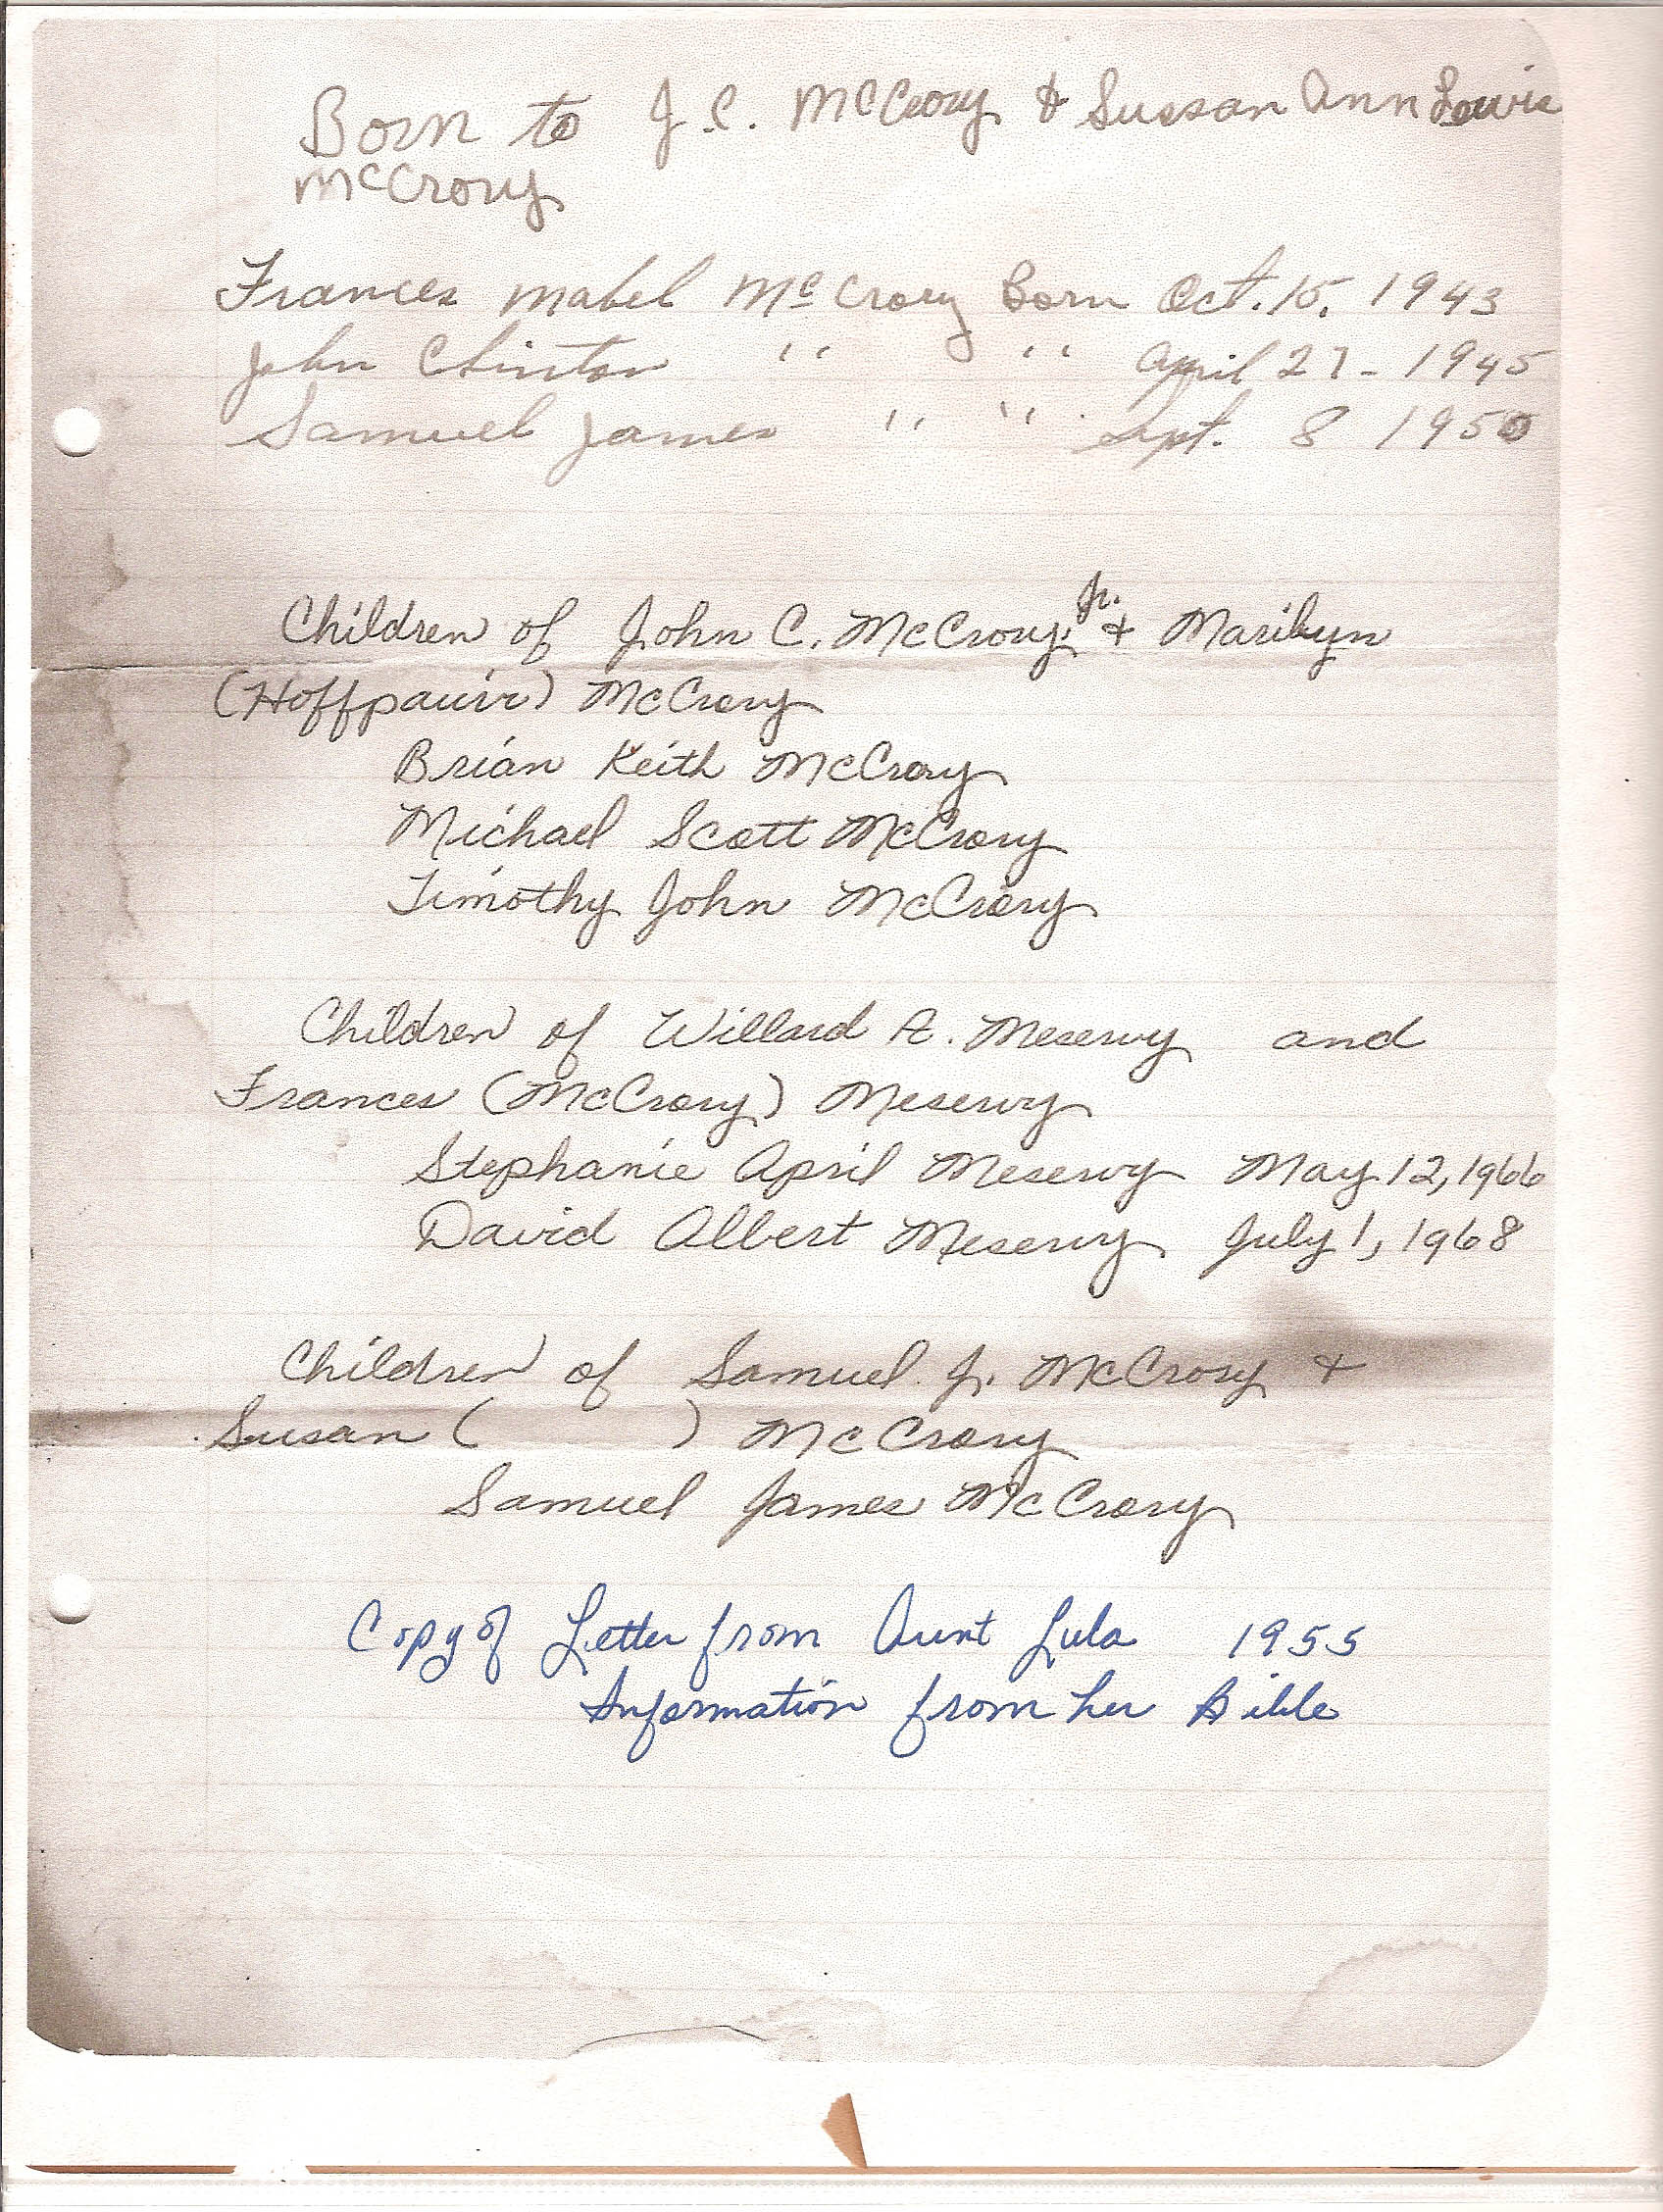 Born to J. C. McCrory & Sussan Ann Lewis
McCrory
Frances Mabel McCrory Born Oct. 15, 1943
John Clinton " " April 27 - 1945
Samuel James " " Sept. 8 1950
Children of John C. McCrory, Jr. & Marilyn
(Hoffpauir) McCrory
Brian Keith McCrory
Michael Scott McCrory
Timothy John McCrory
Children of Willard A. Meservy and
Frances (McCrory) Meservy
Stephanie April Meservy May 12, 1966
David Albert Meservy July 1, 1968
Children of Samuel J. McCrory &
Susan ( ) McCrory
Samuel James McCrory
Copy of Letter from Aunt Lula 1955
Information from her Bible